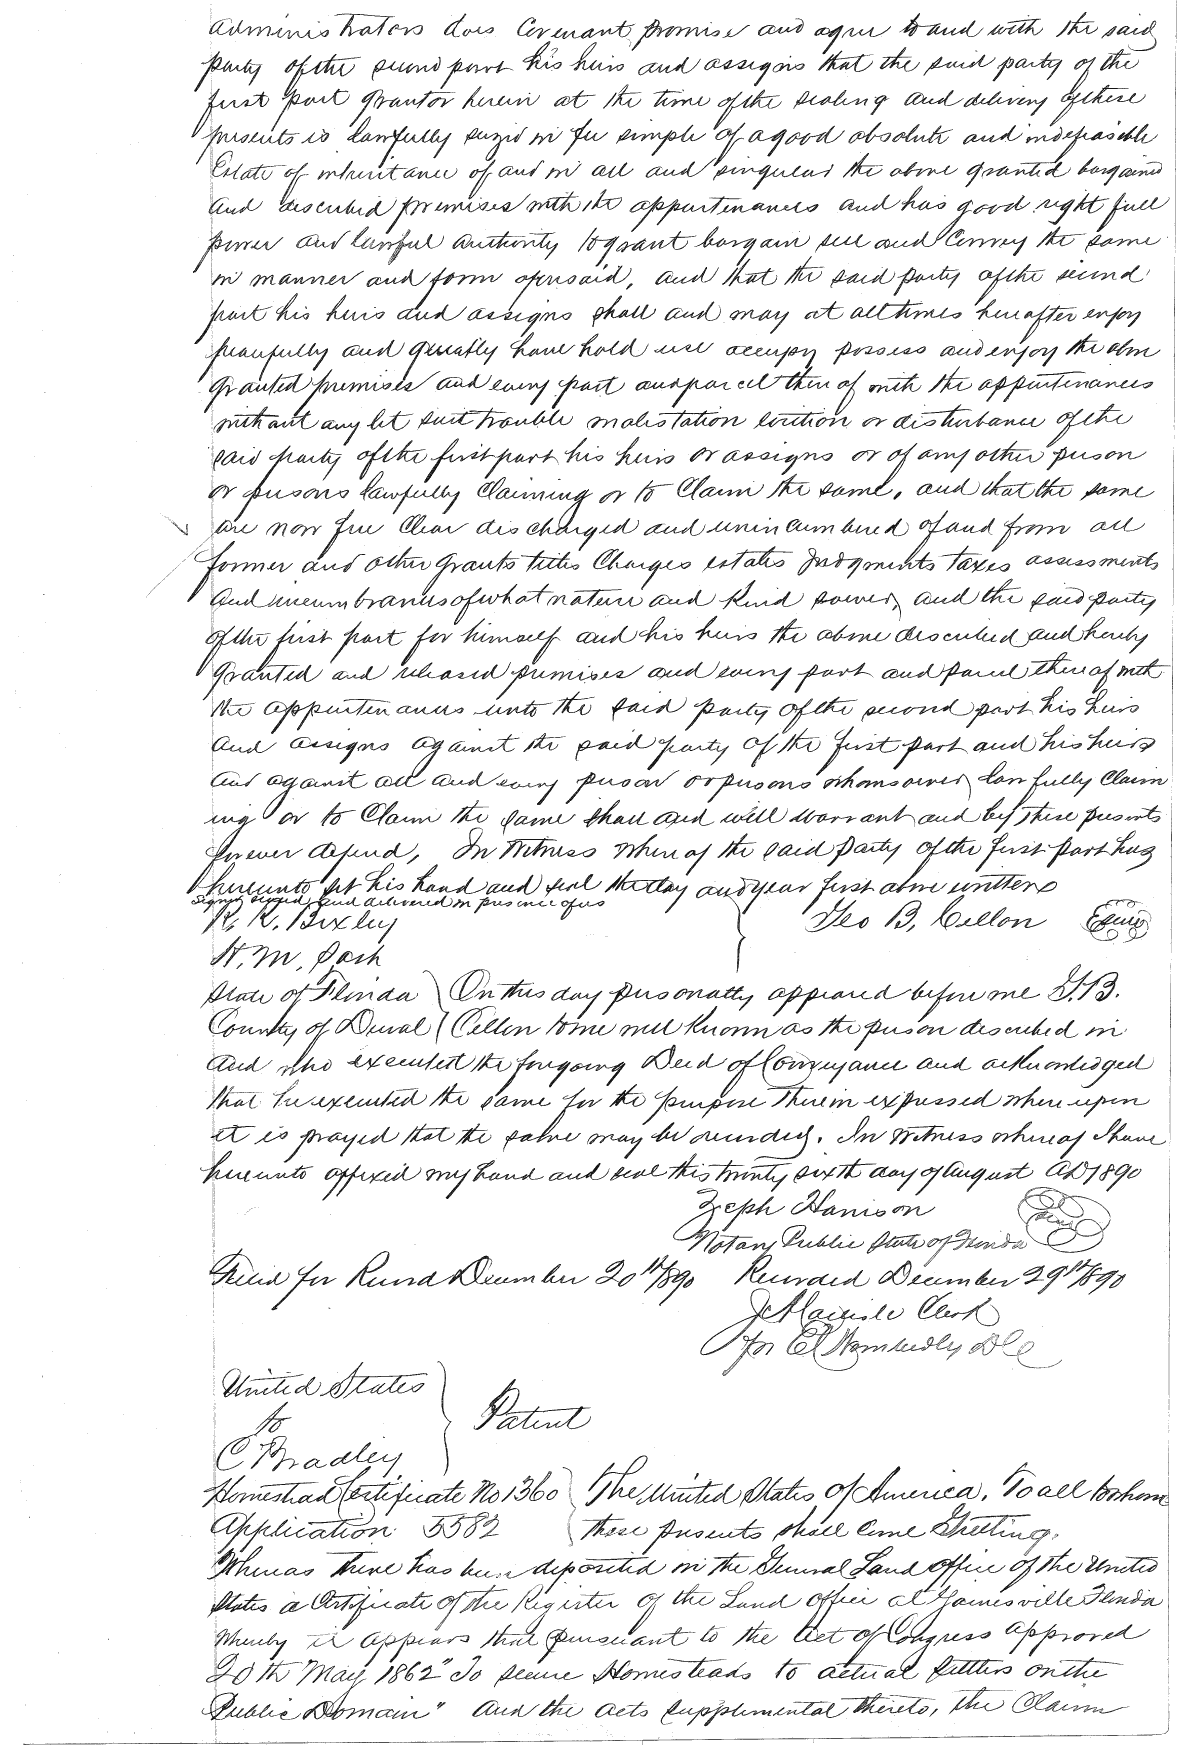 administrators does Covenant promise and agree to and with the said
party of the second part his heirs and assigns that the said party of the
first part grantor herein at the time of the sealing and delivery of these
presents is lawfully seizd in fee simple of a good absolute and indefeasible
Estate of inheritance of and in all and singular the above granted bargained
and described premises with the appurtenances and has good right full
power and lawful authority to grant bargain sell and Convey the same
in manner and form aforesaid, and that the said party of the second
part his heirs and assigns shall and may at all times hereafter enjoy
peacefully and quietly have hold use occupy possess and enjoy the above
granted premises and every part and parcel thereof with the appurtenances
without any let suit trouble molestation eviction or disturbance of the
said party of the first part his heirs or assigns or of any other person
or persons lawfully Claiming or to Claim the same, and that the same
are now free Clear discharged and unincumbered of and from all
former and other grants titles Charges estates Judgments taxes assessments
and incumbrances of what nature and kind soever, and the said party
of the first part for himself and his heirs the above described and hereby
granted and released premises and every part and parcel thereof with
the appurtenances unto the said party of the second part his heirs
and assigns against the said party of the first part and his heirs
and against all and every person or persons whomsoever, lawfully Claim
ing or to Claim the same shall and will warrant and by these presents
forever defend, In Witness Whereof the said party of the first part has
hereunto set his hand and seal the day and year first above written
Signed sealed and delivered in presence of us
R. K. Bixley Geo B. Cellon Seal
H. M. Pash
State of Florida On this day personally appeared before me G. B.
County of Duval Cellon to me well known as the person described in
and who executed the foregoing Deed of Conveyance and acknowledged
that he executed the same for the purpose therein expressed where upon
it is prayed that the same may be recorded. In Witness whereof I have
hereunto affixed my hand and seal this twenty sixth day of August AD 1890
Zeph Harrison
Notary Public State of Florida
Filed for Record December 20th 1890 Recorded December 29th 1890
Clerk
for
United States
to Patent
C Bradley
Homestead Certificate No 1360 The United States of America. To all to whom
Application 5582 these presents shall Come Greeting.
Whereas there has been deposited in the General Land office of the United
States a Certificate of the Register of the Land office at Gainesville Florida
Whereby it appears that pursuant to the Act of Congress Approved
20th May 1862 "To secure Homesteads to actual Settlers on the
Public Domain" and the acts supplimental thereto, the Claim